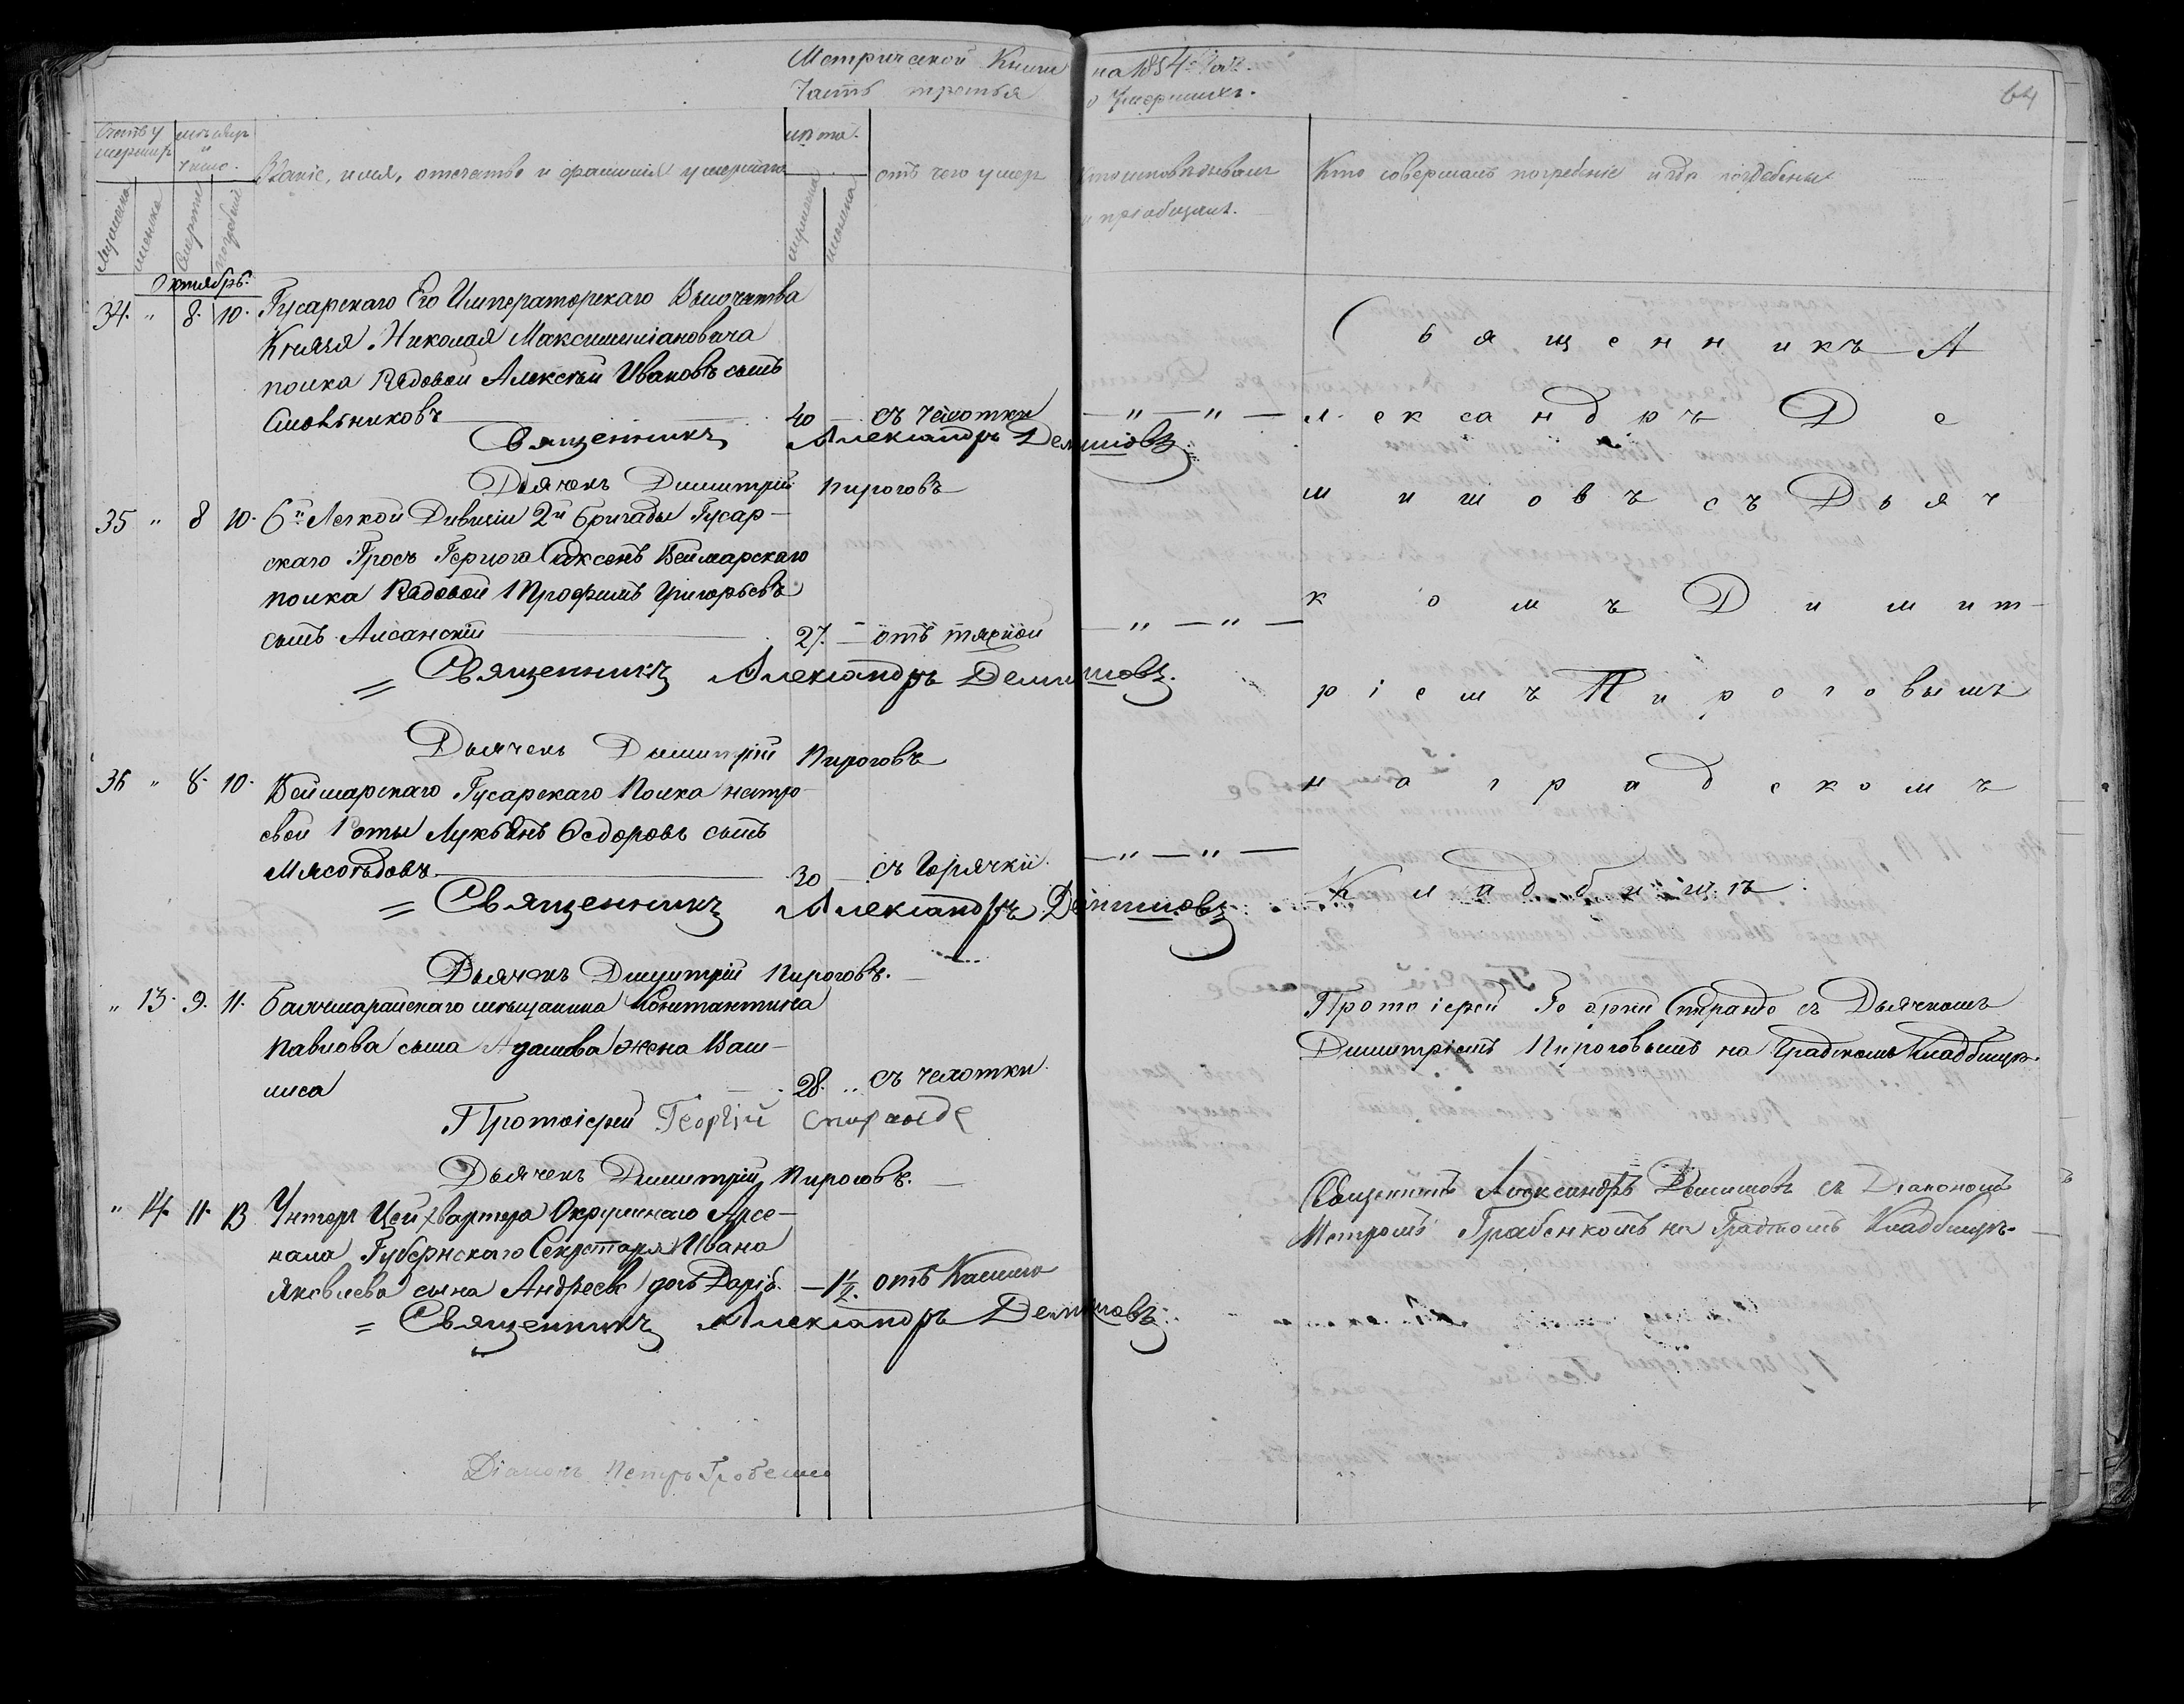 Метрической Книги на 1854 годъ.
Часть третья о умершихъ.
64
Счетъ умершихъ
мѣсяцъ и число.
Званіе, имя, отечество и фамилія умершаго
лѣта.
отъ чего умеръ
Кто исповѣдывалъ и пріобщалъ.
Кто совершалъ погребеніе и гдѣ погребены
мужеска
женска
смерти
погребенія
мужеска
женска
Октябрь.
34. " 8. 10. Гусарскаго Его Императорскаго Высочества
Князя Николая Максимиліановича
полка Рядовой Алексѣй Ивановъ сынъ
Смольниковъ 40 — съ чахотки — " — " —
Священникъ Александръ Демишовъ
Дьячекъ Димитрій Пироговъ
35 " 8 10. 6й Легкой Дивизіи 2й бригады Гусар-
скаго Гросъ Герцога Саксенъ Веймарскаго
полка Рядовой Профилъ Григорьевъ
сынъ 27. — отъ — " — " —
= Священникъ Александръ Демишовъ.
Дьячекъ Димитрій Пироговъ
36 " 8. 10. Веймарскаго Гусарскаго Полка нестро-
евой Роты Лукьянъ Ѳедоровъ сынъ
Мясоѣдовъ 30 — съ Горячки — " — " —
= Священникъ Александръ Демишовъ
Дьячекъ Димитрій Пироговъ.
Священникъ А
лександръ Де
мишовъ съ Дьяч
комъ Димит-
ріемъ Пироговымъ
на градскомъ
Кладбищѣ.
" 13. 9. 11. Бахчисарайскаго мѣщанина Константина
Павлова сына Адамова жена Васи-
лиса 28. .. съ чахотки.
Протоіерей Георгій Спиранде
Дьячекъ Димитрій Пироговъ.
Протоіерей Георгій Спирандо съ Дьячкомъ
Димитріемъ Пироговымъ на Градскомъ Кладбищѣ.
" 14. 11. 13 Унтеръ Цейхвартера Окружнаго Арсе-
нала Губернскаго Секретаря Ивана
Яковлева сына Андреева дочь Дарія. — 1½. отъ Кашля
= Священникъ Александръ Демишовъ
Діаконъ Петръ Гребенко
Священникъ Александръ Демишовъ съ Діакономъ
Петромъ Гребенкомъ на Градскомъ Кладбищѣ.